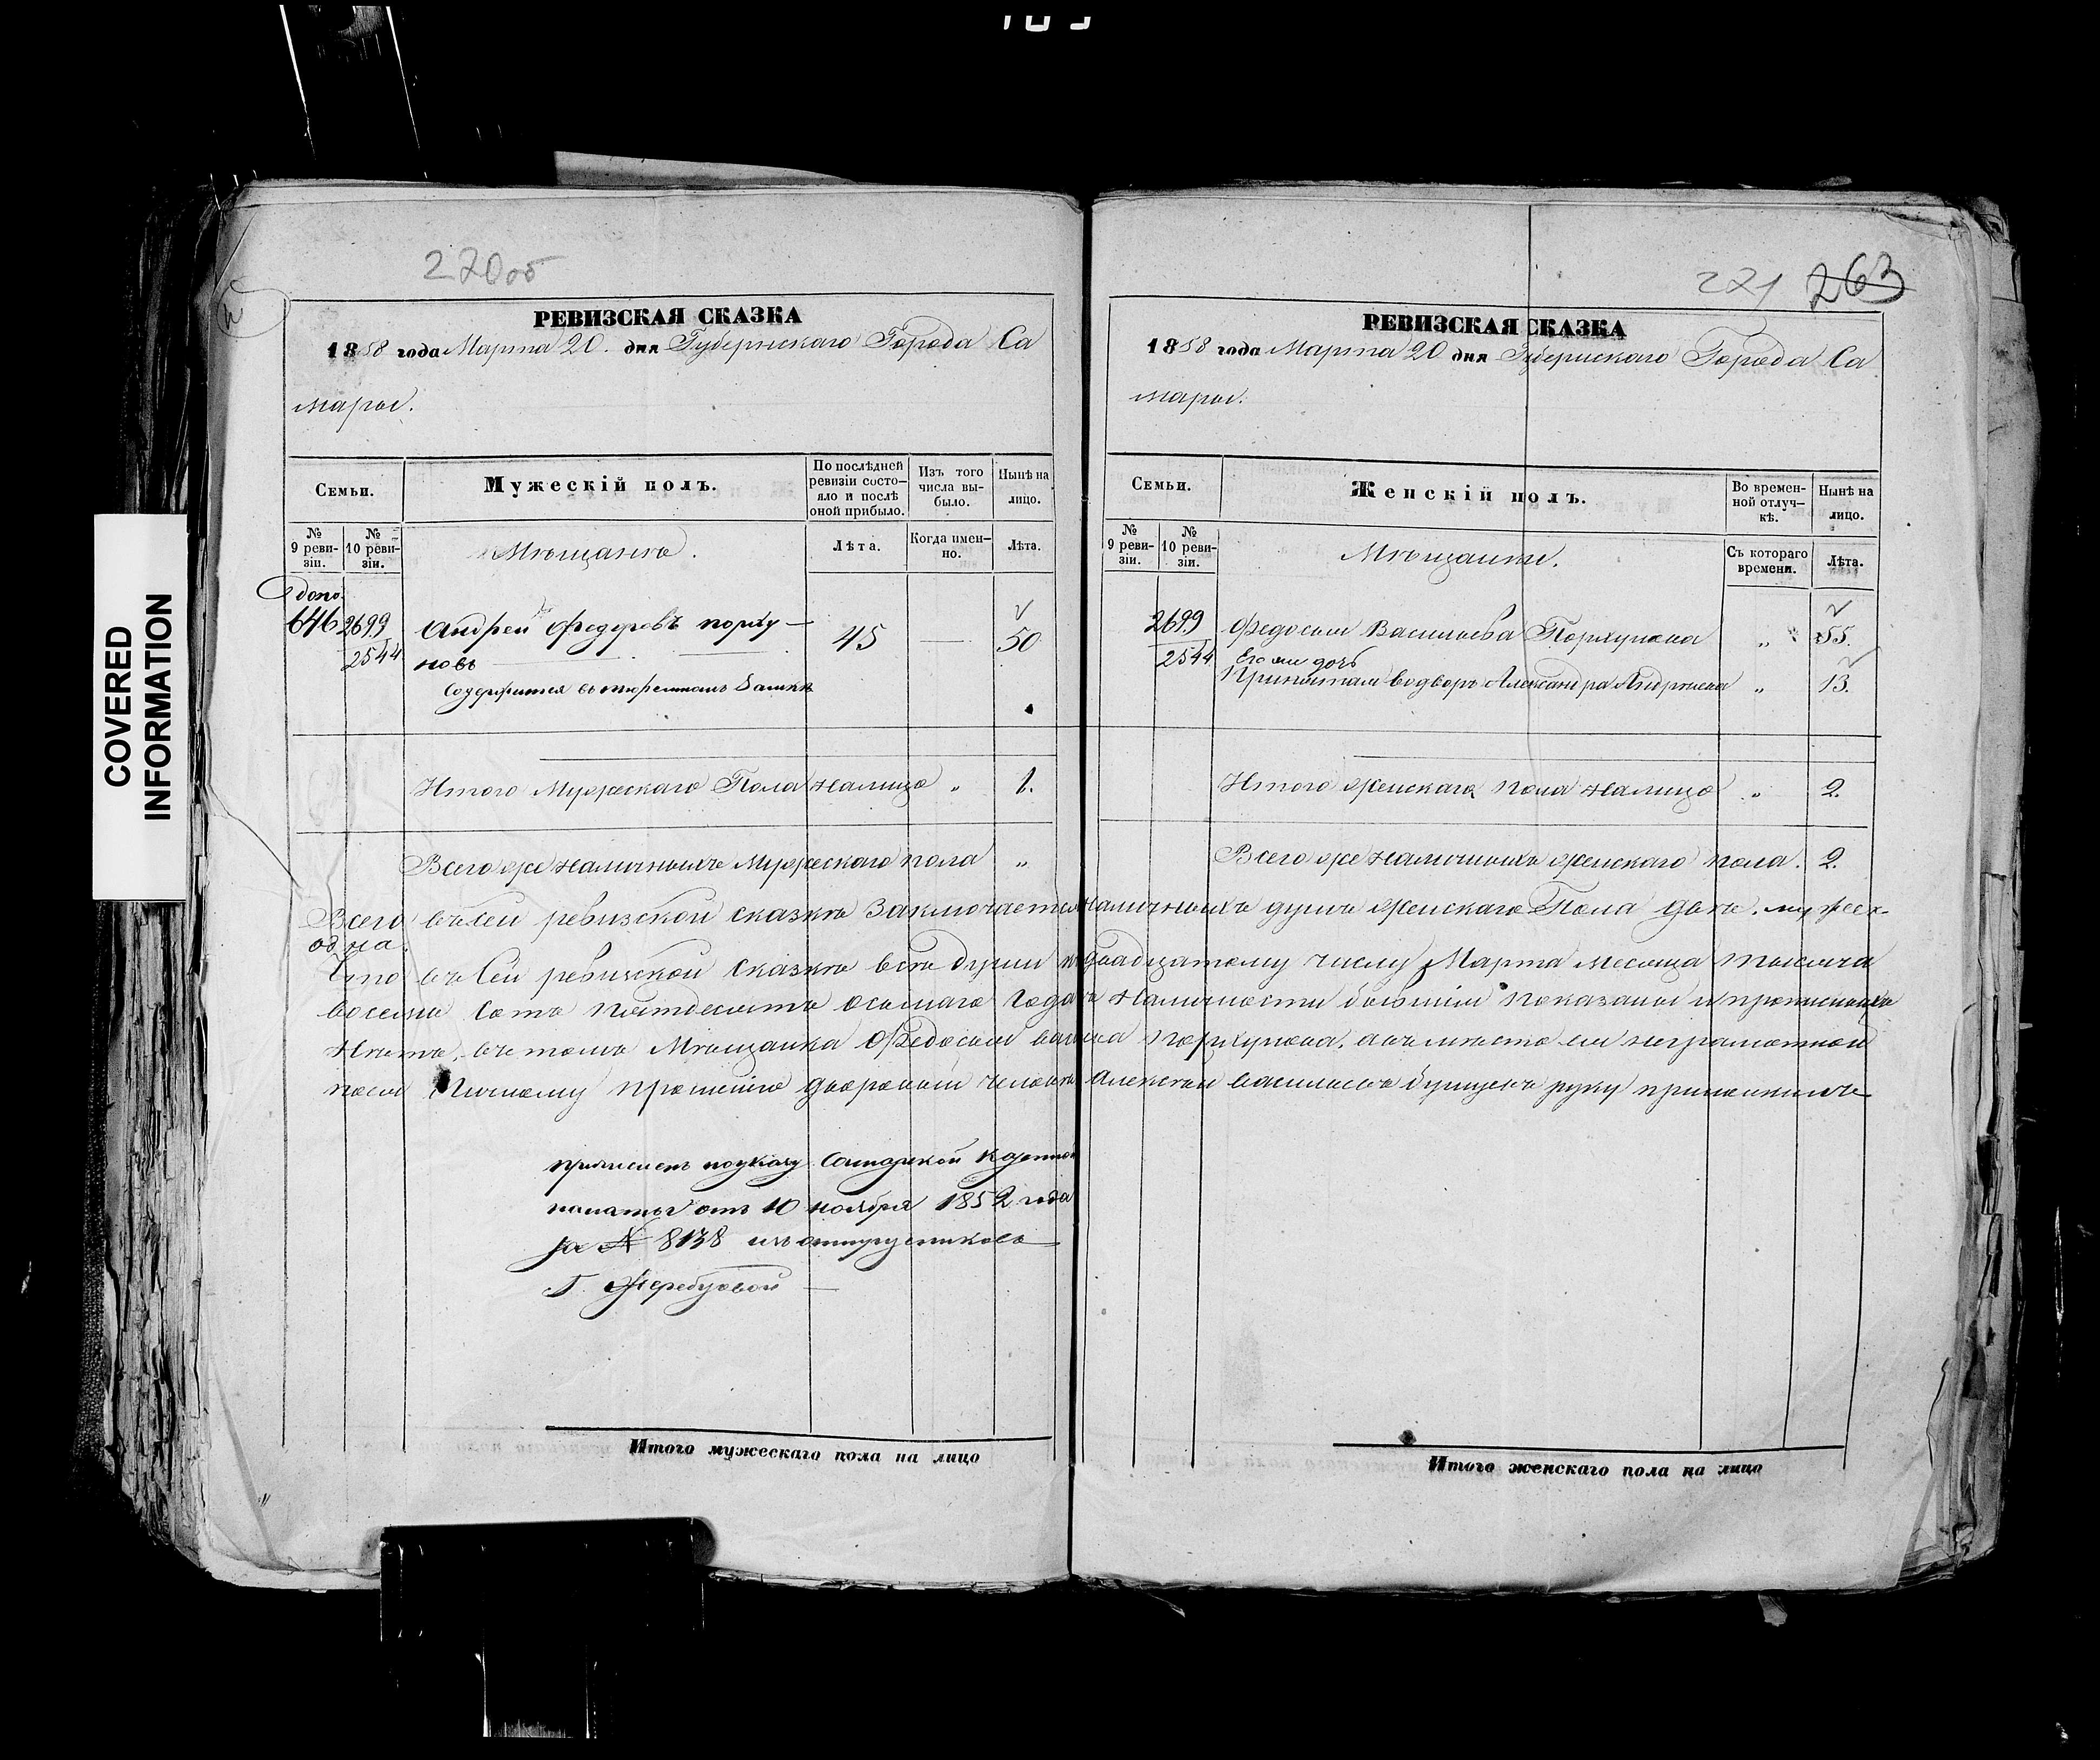 COVERED
INFORMATION
270об
РЕВИЗСКАЯ СКАЗКА
1858 года Марта 20. дня Губернскаго Города Са
мары.
Семьи.
Мужескій полъ.
По послѣдней
ревизіи состо-
яло и послѣ
оной прибыло.
Изъ того
числа вы-
было.
Нынѣ на
лицо.
№
9 реви-
зіи.
№
10 реви-
зіи.
Мѣщанъ.
Лѣта.
Когда имен-
но.
Лѣта.
допо.
646 2699 Андрей Федоровъ порху- 45 — 50
2544 новъ
Содержится въ тюремномъ замкѣ
Итого Мужескаго Пола налицо „ 1.
Всего же наличныхъ Мужескаго пола „
221 263
РЕВИЗСКАЯ СКАЗКА
1858 года Марта 20 дня Губернскаго Города Са
мары.
Семьи.
Женскій полъ.
Во времен-
ной отлуч-
кѣ.
Нынѣ на
лицо.
№
9 реви-
зіи.
№
10 реви-
зіи.
Мѣщанки.
Съ котораго
времени.
Лѣта.
2699 Федосья Васильева Порхунова „ 55.
2544 Его дочь
Александра Андреева „ 13.
Итого женскаго пола налицо „ 2.
Всего же наличныхъ женскаго пола. 2.
Всего въ сей ревизской сказкѣ Заключается наличныхъ душъ женскаго Пола двѣ. мужеск.
одна.
Что въ Сей ревизской Сказкѣ всѣ души къ двадцатому числу Марта месяца тысяча
восемь Сотъ пятдесятъ осьмаго Года въ Наличности бывшіи показаны и прописныхъ
Нѣтъ, въ томъ Мѣщанка Федосья Порхунова, а вместо ея неграмотной
по ея Личному прошенію дворовый человѣкъ Алексѣй васильевъ руку приложилъ
причисленъ по указу Самарской Казенной
палаты отъ 10 ноября 1852 года
за № 8138 изъ отпущенниковъ
Г.
Итого мужескаго пола на лицо
Итого женскаго пола на лицо